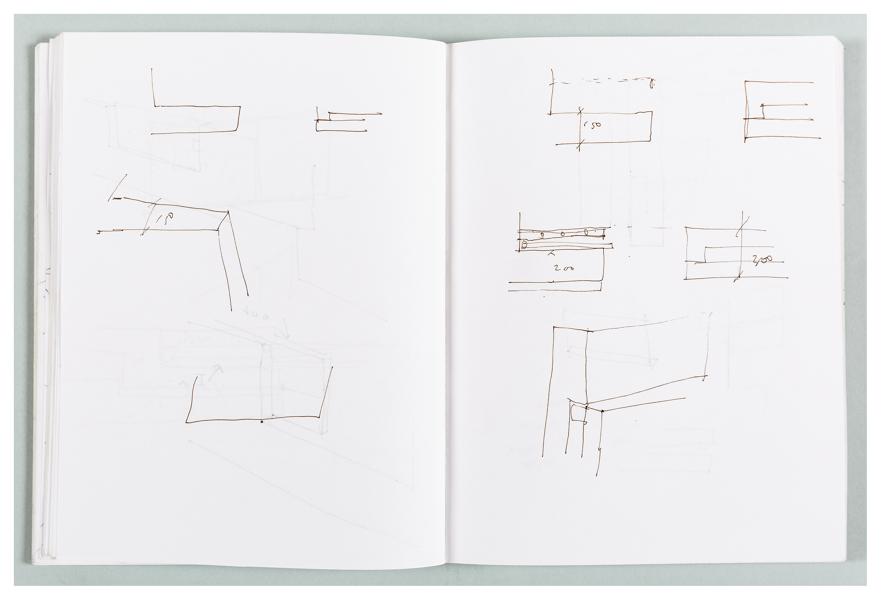 150
150
200
200